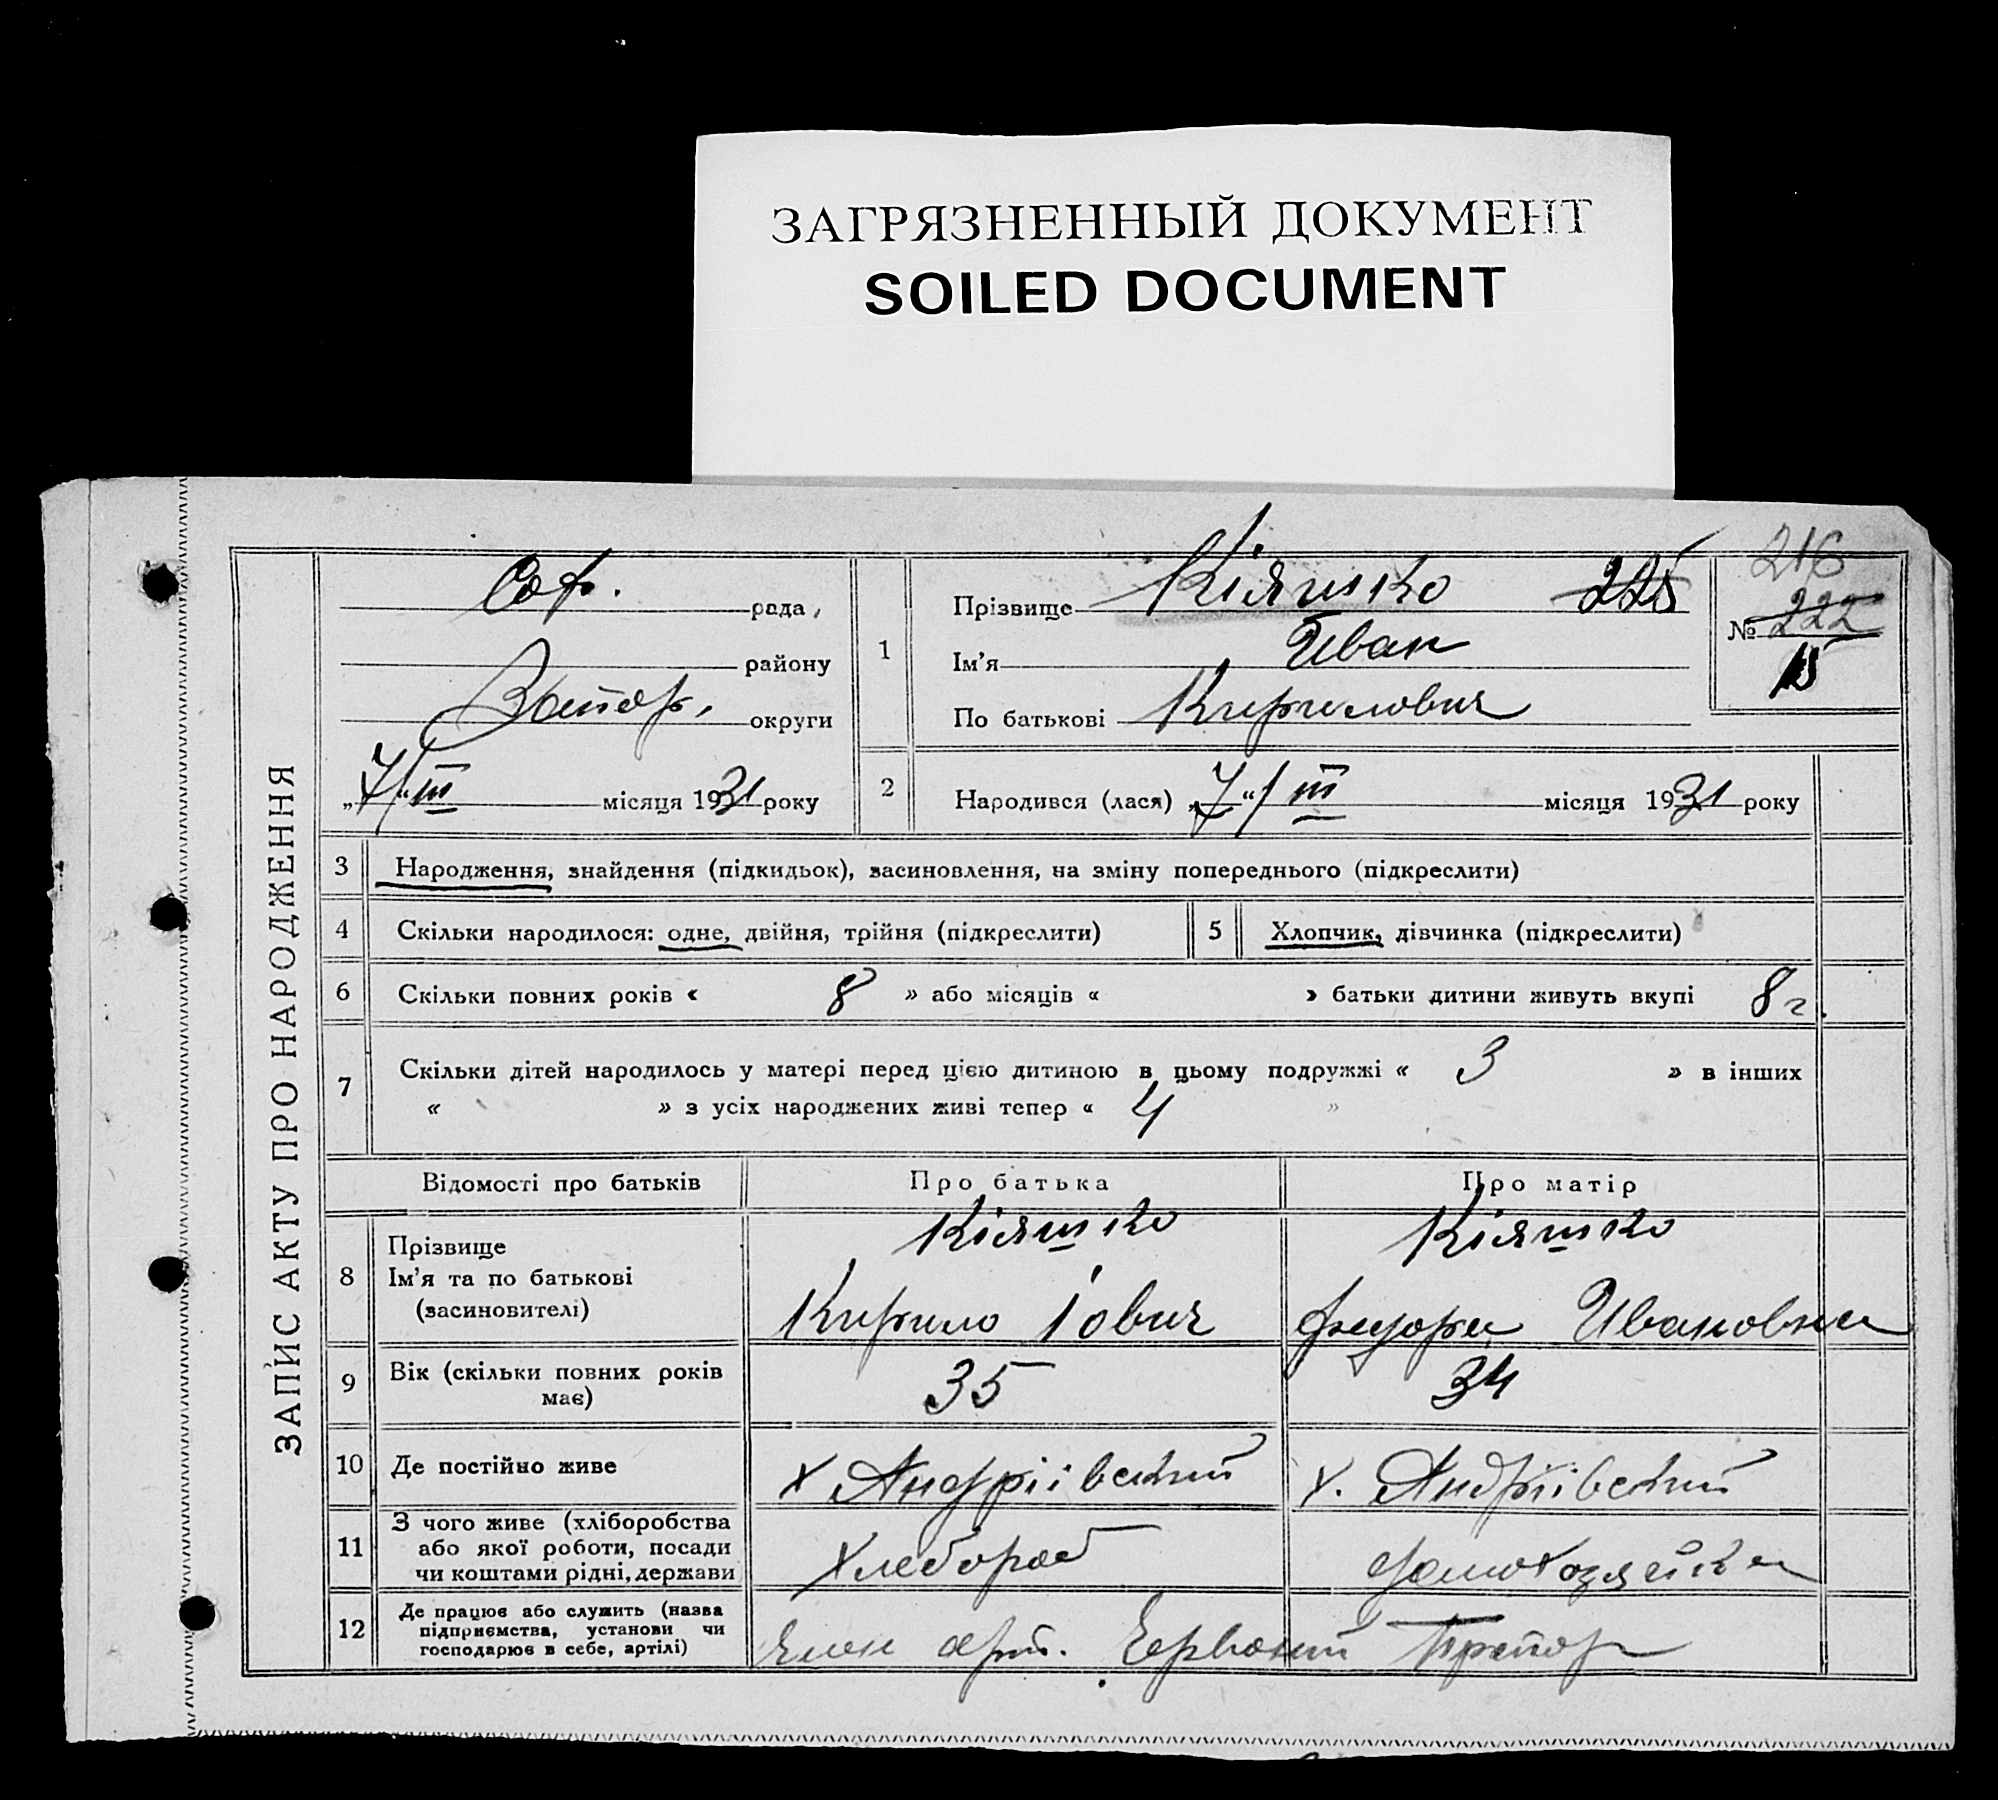 ЗАГРЯЗНЕННЫЙ ДОКУМЕНТ
SOILED DOCUMENT
ЗАПИС АКТУ ПРО НАРОДЖЕННЯ
Соф. рада,
району
Запор. округи
„7/“ III місяця 1931 року
1
Прізвище Кіяшко 225
Ім'я Иван
По батькові Кирилович
216
№ 222
15
2 Народився (лася) „7“/ III місяця 1931 року
3 Народження, знайдення (підкидьок), засиновлення, на зміну попереднього (підкреслити)
4 Скільки народилося: одне, двійня, трійня (підкреслити)
5 Хлопчик, дівчинка (підкреслити)
6 Скільки повних років « 8 » або місяців « » батьки дитини живуть вкупі 8 г.
7 Скільки дітей народилось у матері перед цією дитиною в цьому подружжі « 3 » в інших
« » з усіх народжених живі тепер « 4 »
Відомості про батьків Про батька Про матір
8 Прізвище Кіяшко Кіяшко
Ім'я та по батькові
(засиновителі) Кирило Іович Федора Ивановна
9 Вік (скільки повних років має) 35 34
10 Де постійно живе х Андріівский х. Андріівский
11 З чого живе (хліборобства
або якої роботи, посади
чи коштами рідні, держави Хлебороб домохозяйка
12 Де працює або служить (назва
підприємства, установи чи
господарює в себе, артілі) Член арт. Червоний Прапор